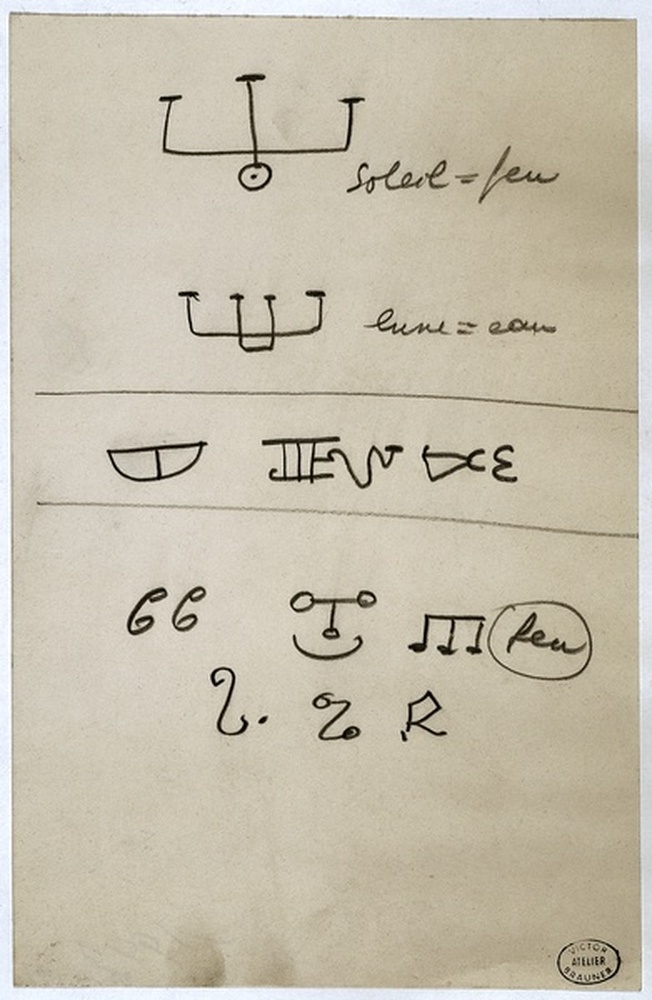 soleil = feu
lune = eau
feu
VICTOR
ATELIER
BRAUNER